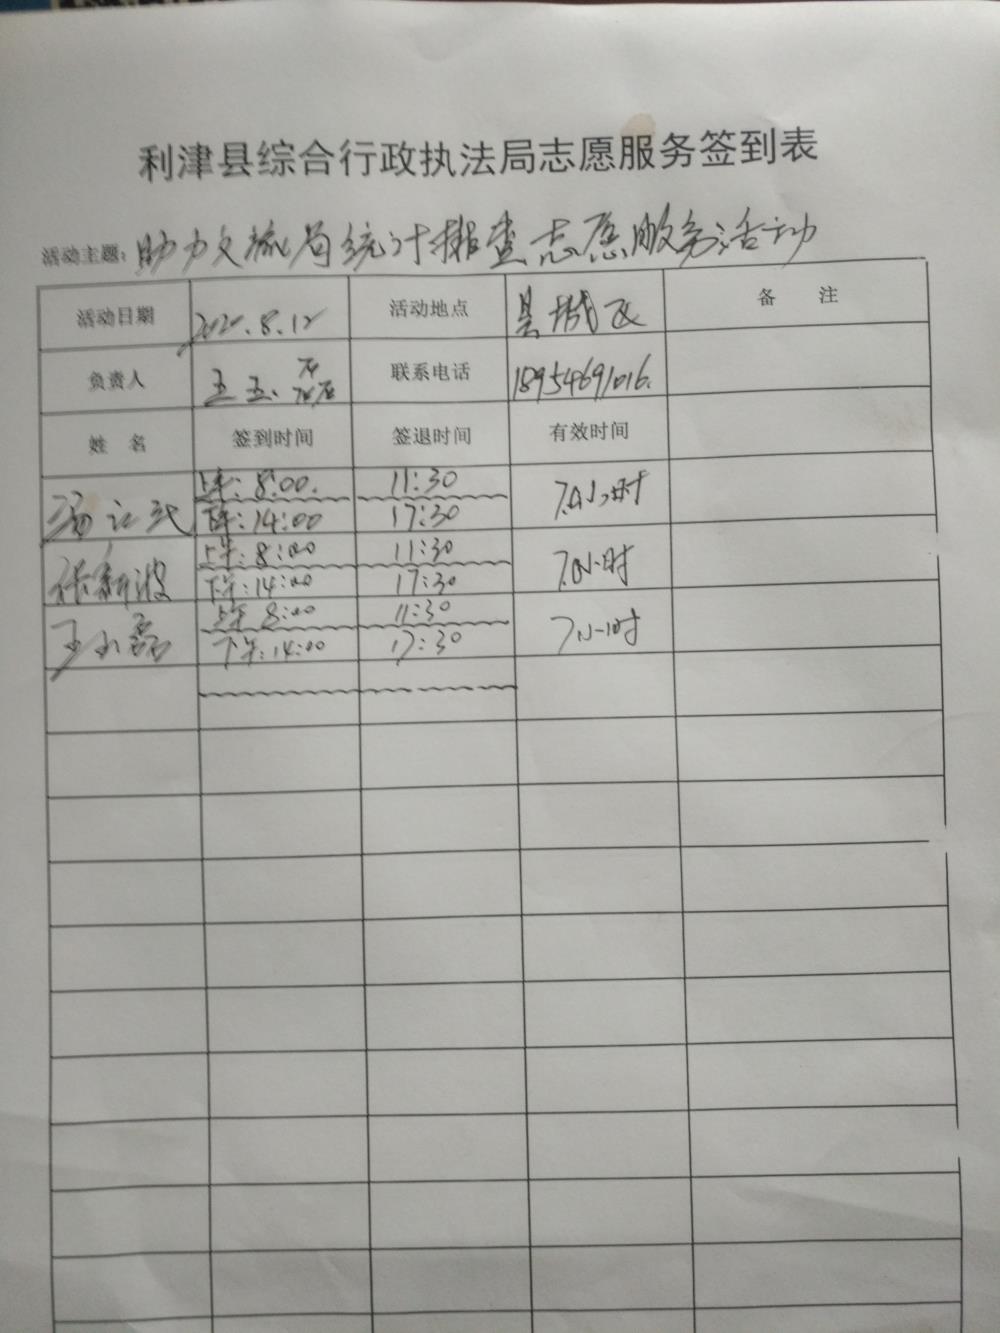 利津县综合行政执法局志愿服务签到表
活动主题：助力文旅局统计排查志愿服务活动
活动日期 2020.8.12 活动地点 县城区 备 注
负责人 联系电话 18954691016.
姓 名 签到时间 签退时间 有效时间
上午：8:00. 11:30 7.0小时
下午：14:00 17:30
张新波 上午：8:00 11:30 7.0小时
下午：14:00 17:30
王小磊 上午 8:00 11:30 7小时
下午：14:00 17:30